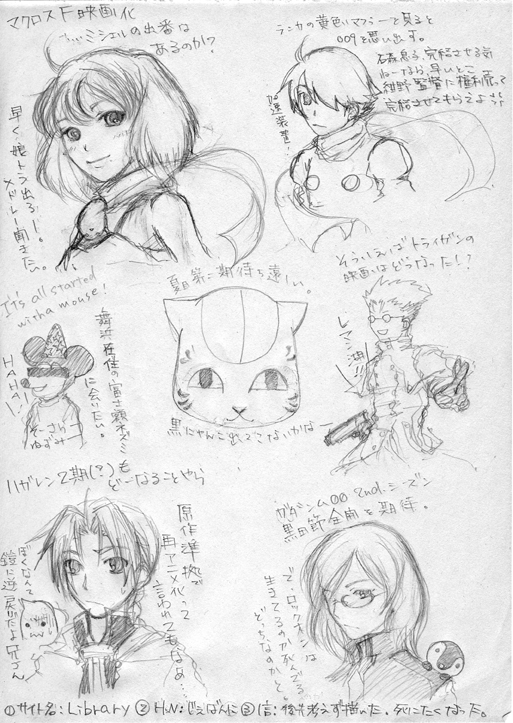 マクロスF映画化
ミシェルの出番は
あるのか?
早く娘トラ出ろー。
メドレー聞きたい。
ランカの黄色いマフラーを見ると
009を思い出す。
石森息子、完結させる気
ねーなら、早いとこ
紺野監督に権利戻して
完結させてもらえよ
加速装置!
It's all started
with a mouse!
HAHA!
そーさらー
ねずみー
舞浜在住の
に会いたい。
夏目第二期待ち遠しい。
黒にゃんこ出てこないかなー
そういえばトライガンの
映画はどうなった!?
レマン湖!!
ハガレン2期(?)も
どーなることやら
原作準拠が
再アニメ化って
言われてもなあ…
ぼくなんて
鎧に逆戻りだよ兄さん
ガンダム00 2nd.シーズン
黒田節全開を期待。
で、ロックオンは
生きてるのか死んでる
どっちなのかと。
①サイト名:Library ②H.N:じぇばんに ③信:後先考えず描いた。死にたくなった。